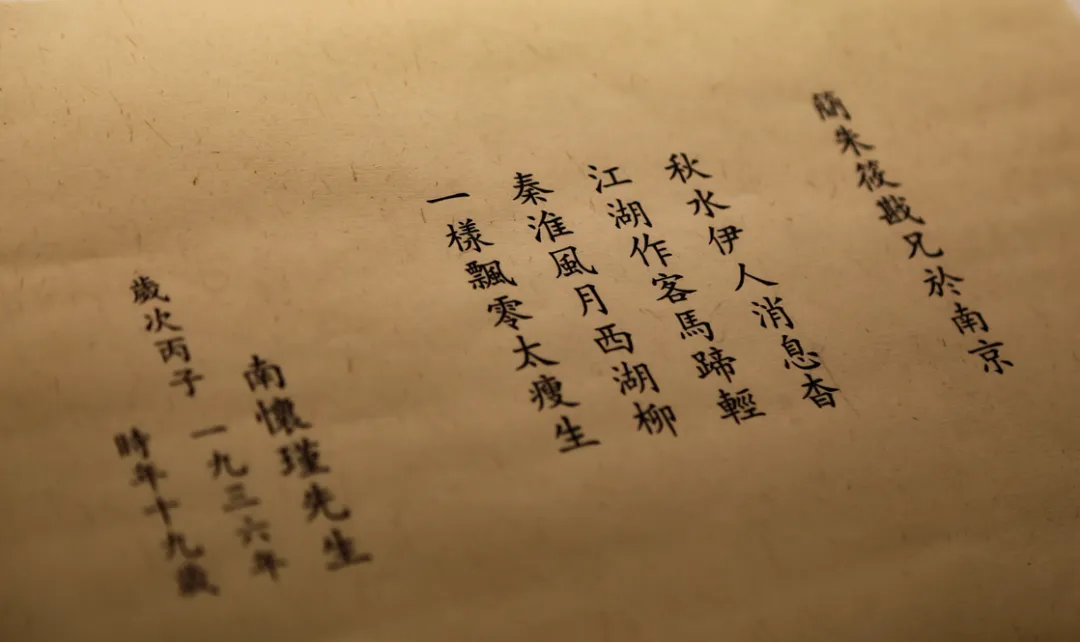 簡朱筱戡兄於南京
秋水伊人消息杳
江湖作客馬蹄輕
秦淮風月西湖柳
一樣飄零太瘦生
南懷瑾先生
歲次丙子 一九三六年
時年十九歲